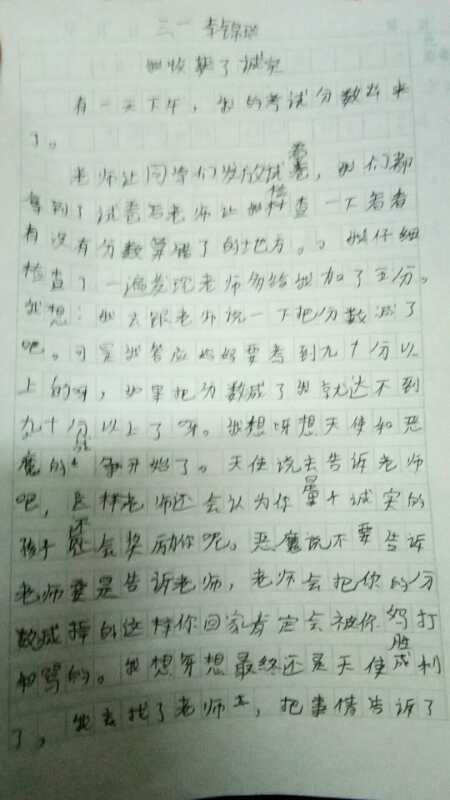 三一 李锦
我收获了诚实
有一天下午，我的考试分数出来
了。
老师让同学们发放试卷，我们都
拿到了试卷后老师让我检查一下看看
有没有分数算错了的地方。我仔细
检查了一遍发现老师多给我加了五分。
我想：我去跟老师说一下把分数减了
吧。可是我答应妈妈要考到九十分以
上的呀，如果把分数减了我就达不到
九十分以上了呀。我想呀想天使和恶
魔的战争开始了。天使说去告诉老师
吧，这样老师还会认为你是个诚实的
孩子还会奖励你呢。恶魔说不要告诉
老师要是告诉老师，老师会把你的分
数减掉的这样你回家肯定会被你妈打
和骂的。我想呀想最终还是天使胜利
了，我去找了老师，把事情告诉了